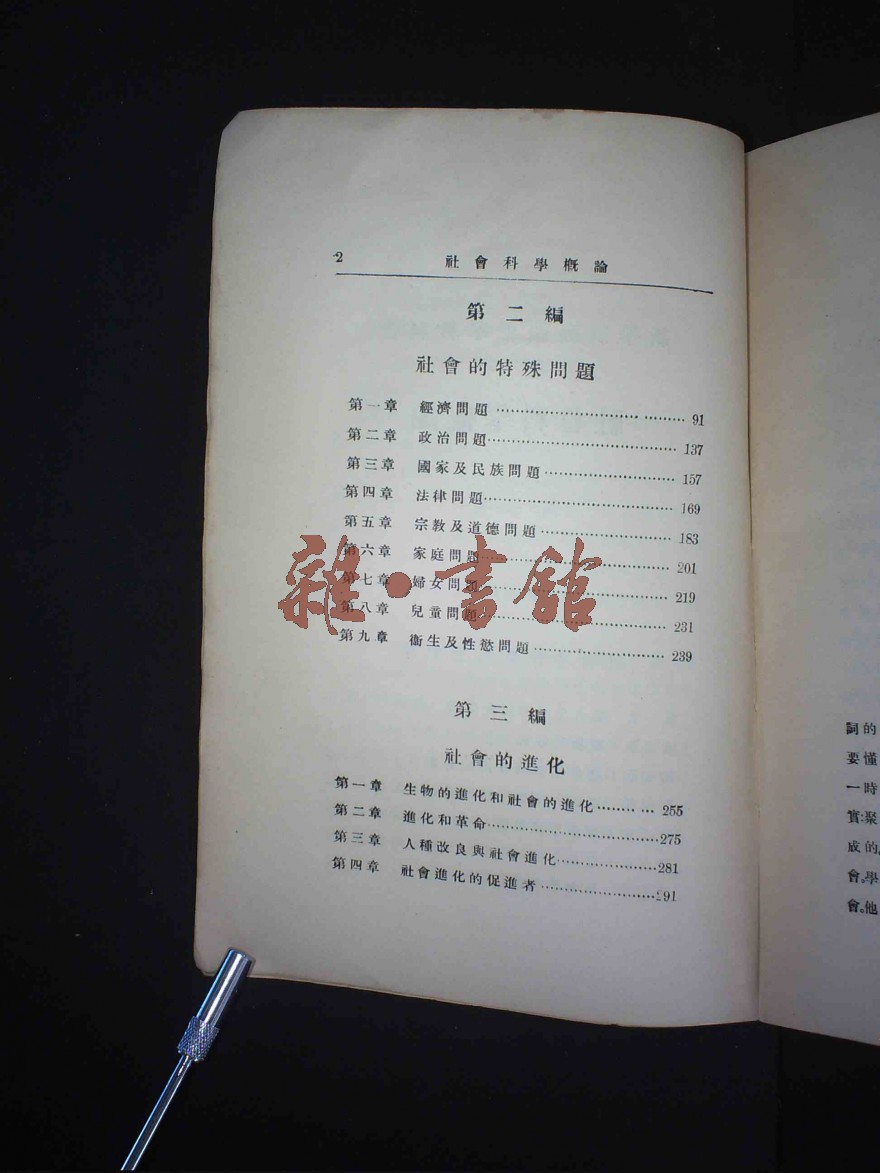 2 社會科學概論
第二編
社會的特殊問題
第一章 經濟問題 …… 91
第二章 政治問題 …… 137
第三章 國家及民族問題 …… 157
第四章 法律問題 …… 169
第五章 宗教及道德問題 …… 183
第六章 家庭問題 …… 201
第七章 婦女問題 …… 219
第八章 兒童問題 …… 231
第九章 衞生及性慾問題 …… 239
雜·書館
第三編
社會的進化
第一章 生物的進化和社會的進化 …… 255
第二章 進化和革命 …… 275
第三章 人種改良與社會進化 …… 281
第四章 社會進化的促進者 …… 291
詞的
要懂
一時
實;聚
成的。
會。學
會。他